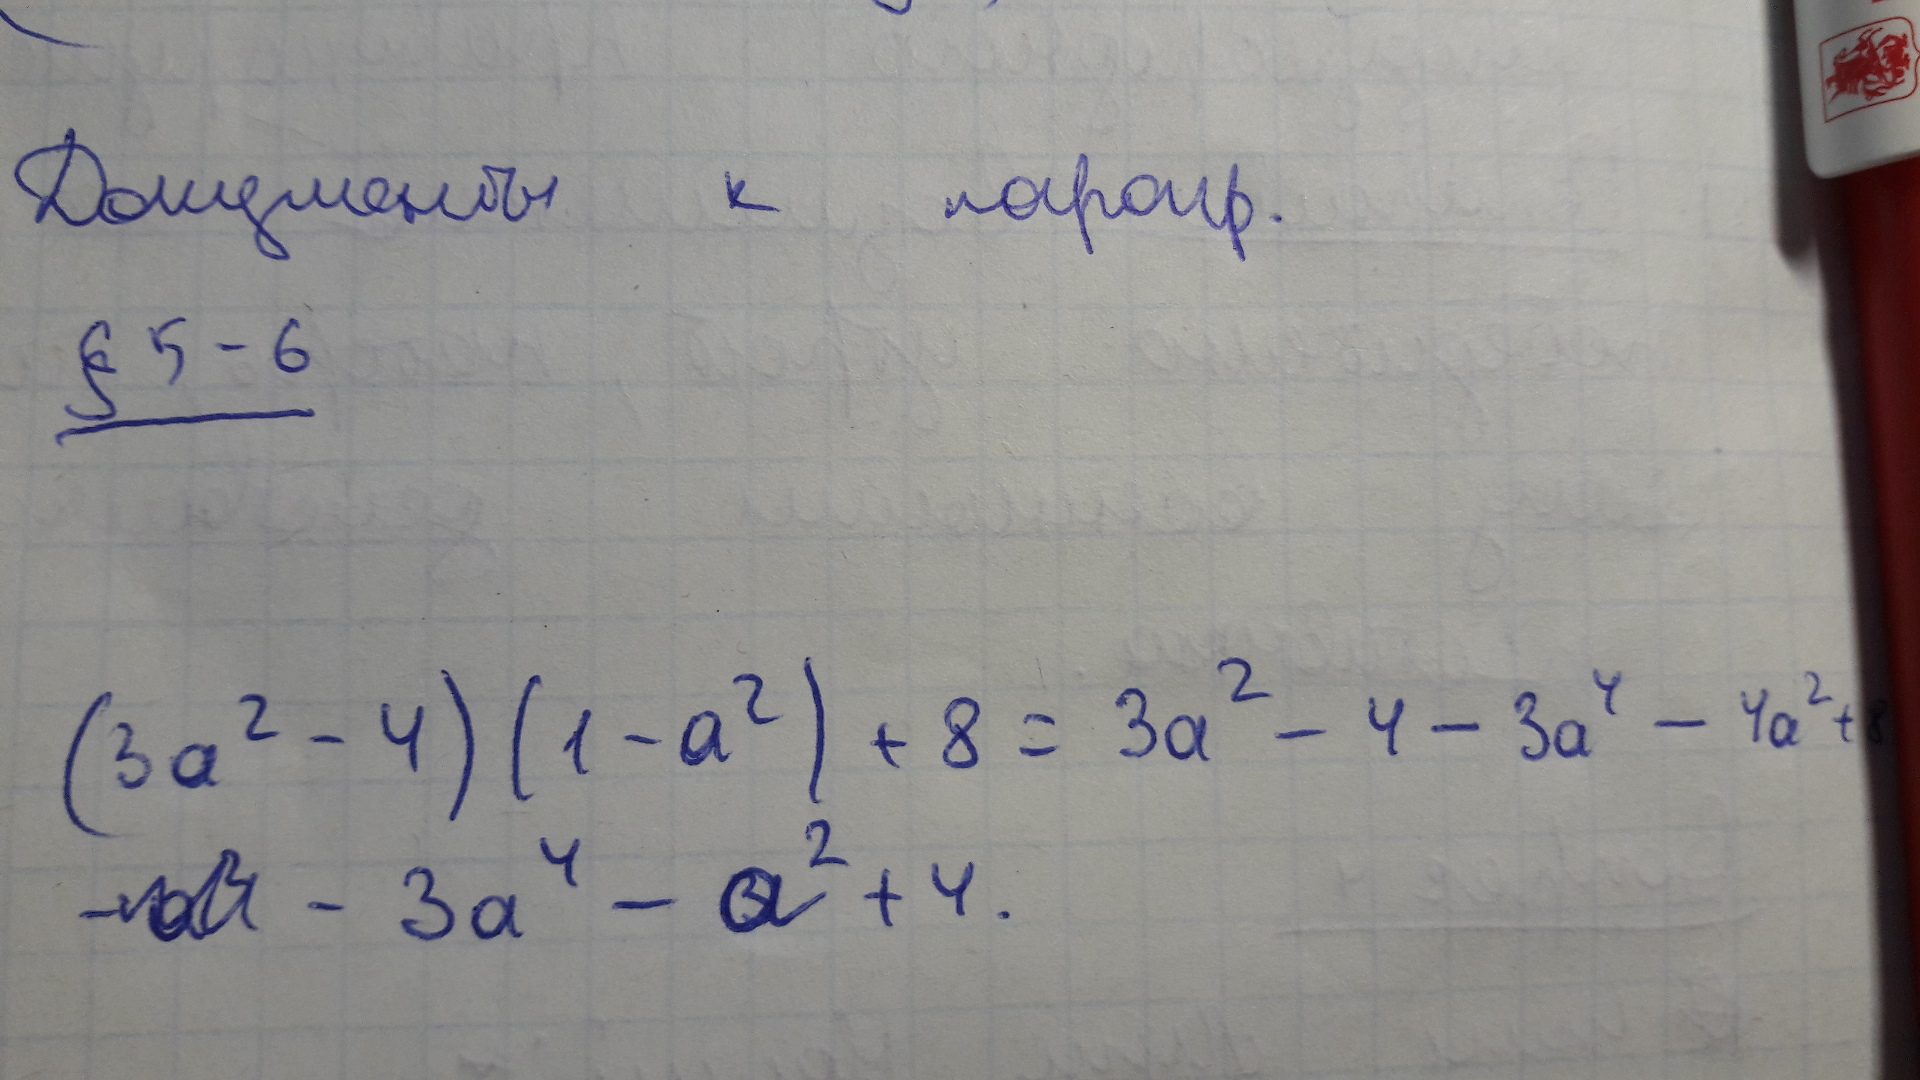 Документы к парагр.
§ 5-6
(3a² - 4)(1 - a²) + 8 = 3a² - 4 - 3a⁴ - 4a² + 8
- 3a⁴ - a² + 4.